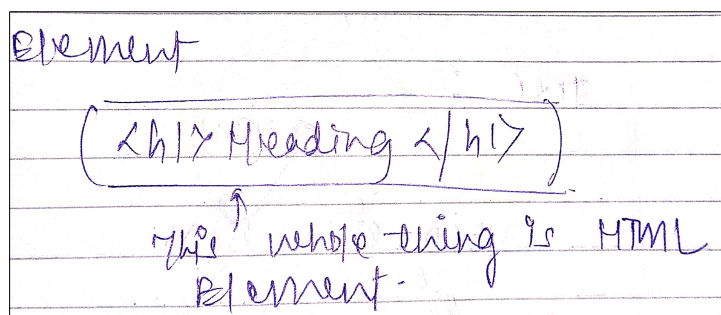 Element
<h1> Heading </h1>
This whole thing is HTML
Element.